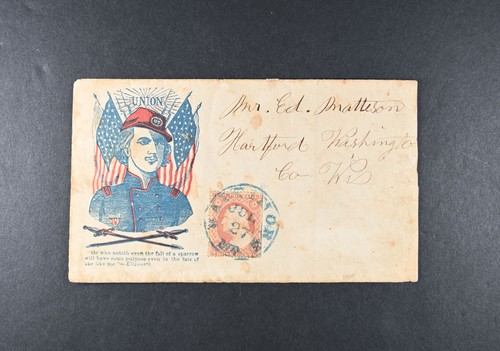 UNION
Mr. Ed. Matteson
Hartford Washington
Co Wis
JUL
27
"He who noteth even the fall of a sparrow
will have some purpose even in the fate of
one like me."—Ellsworth.